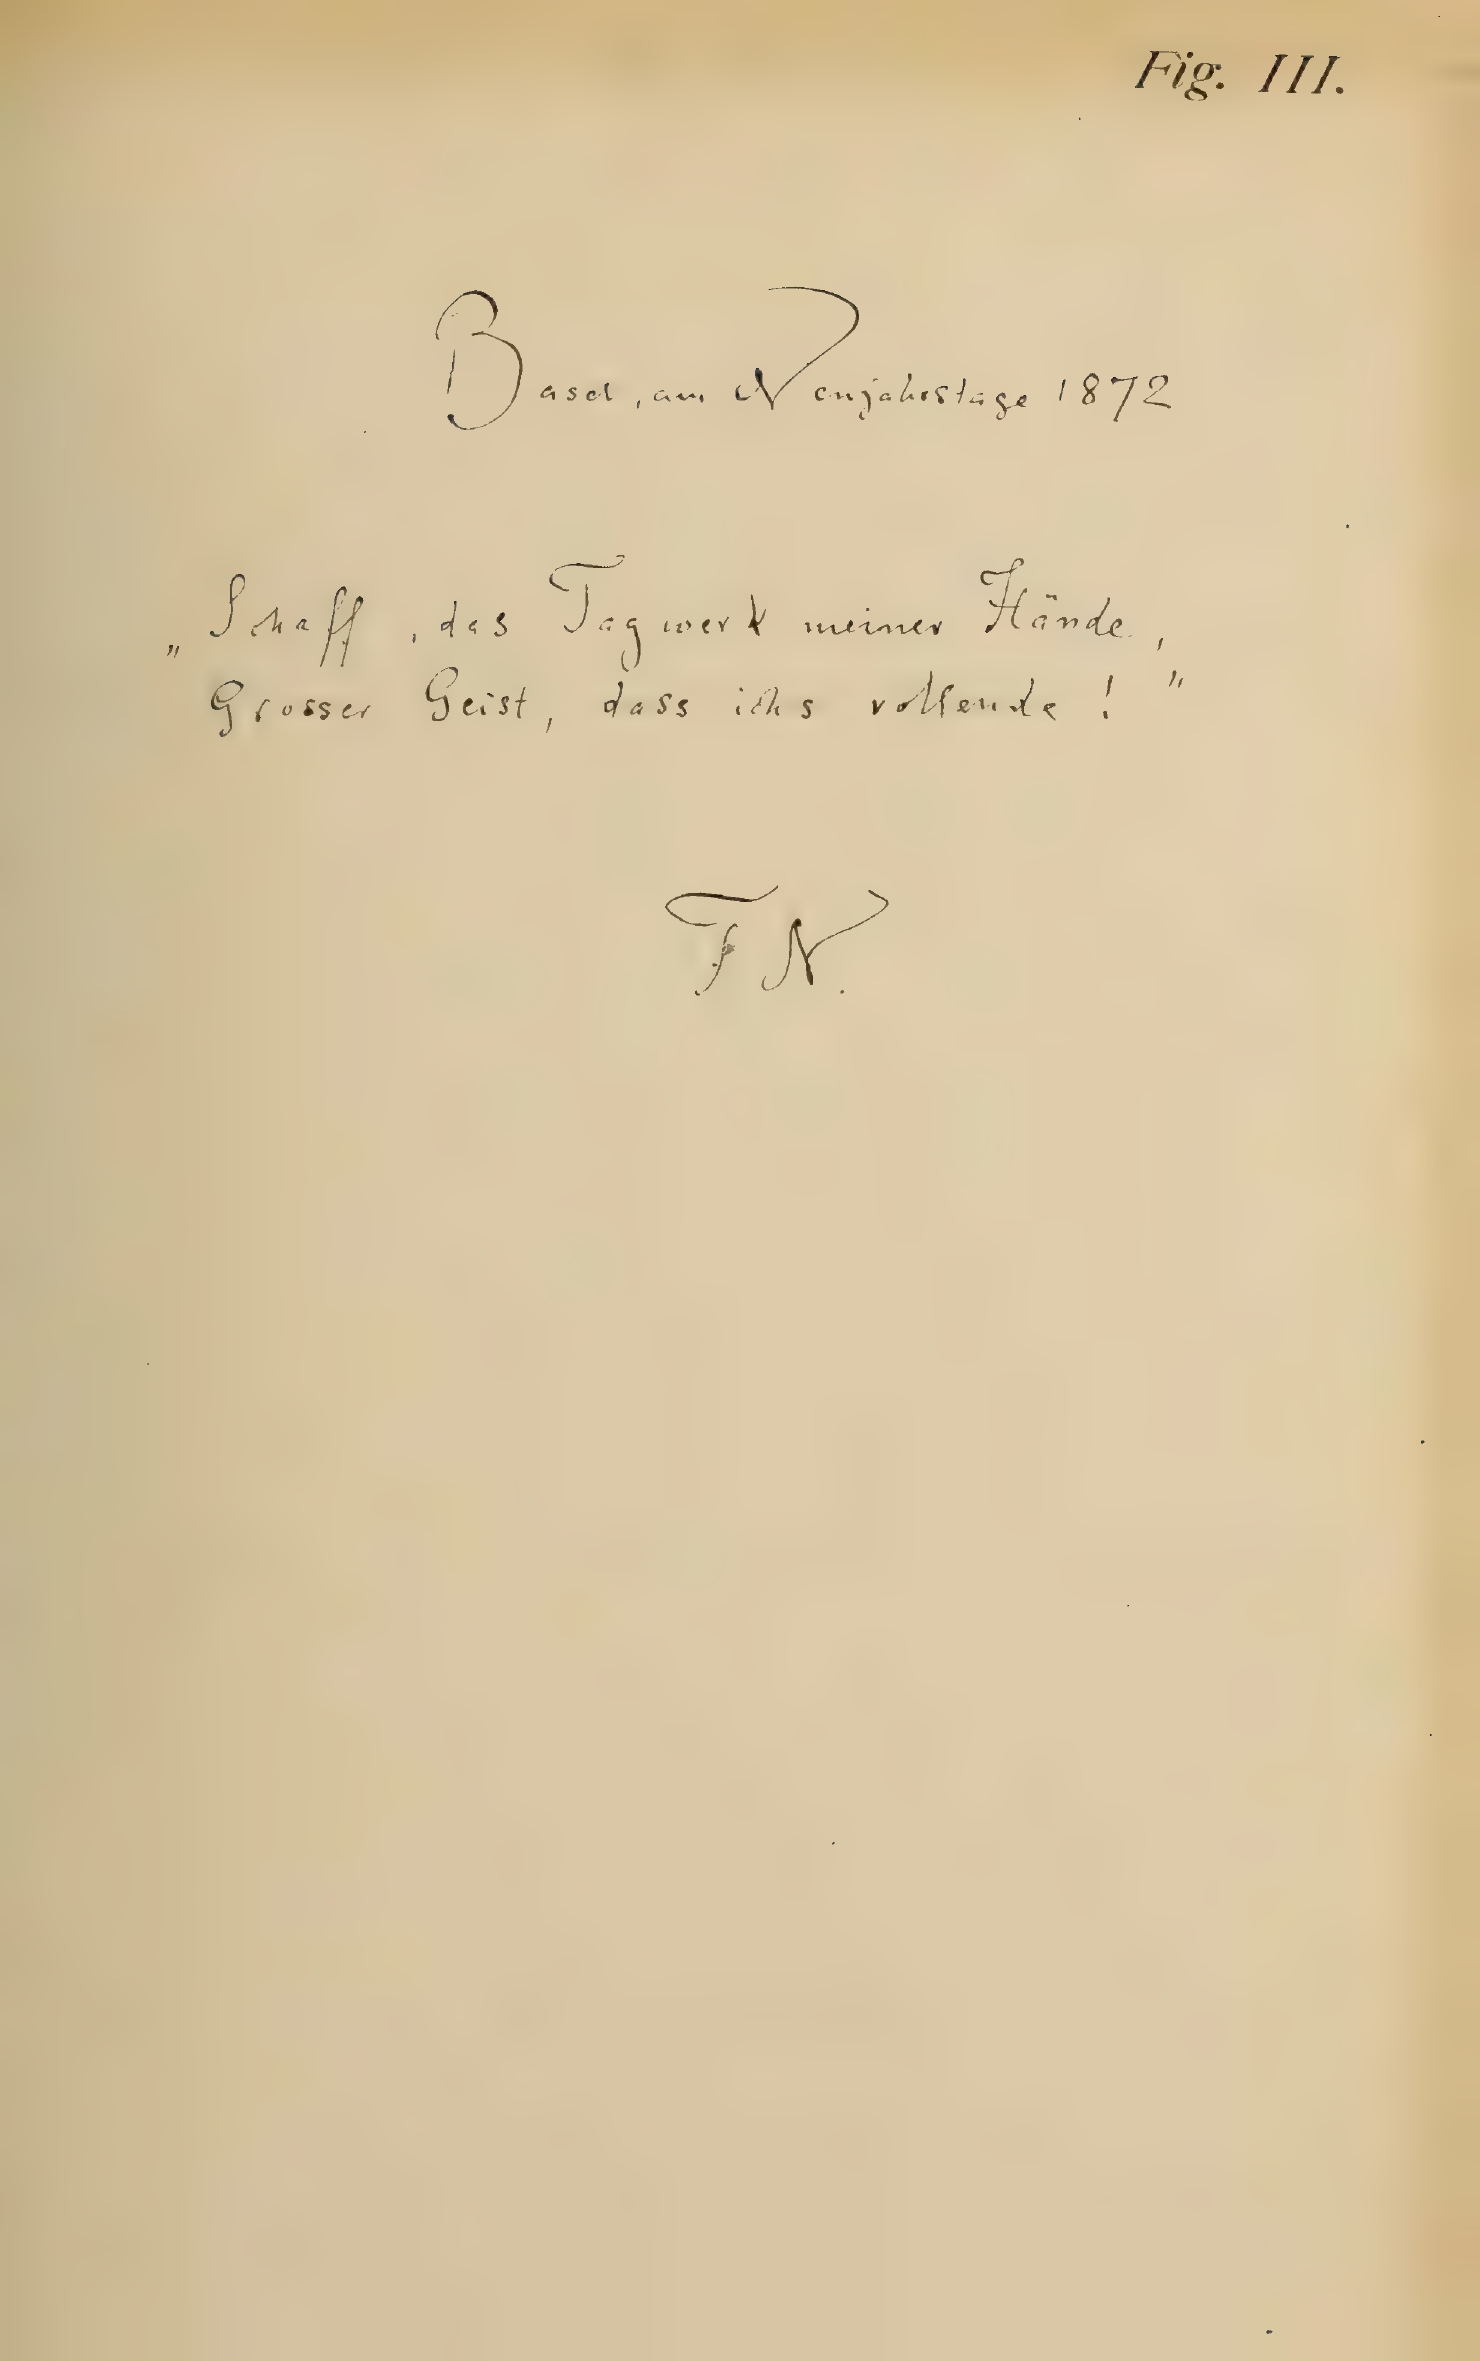 Fig. III.
Basel, am Neujahrstage 1872
„Schaff, das Tagwerk meiner Hände,
Grosser Geist, dass ichs vollende!"
F N.